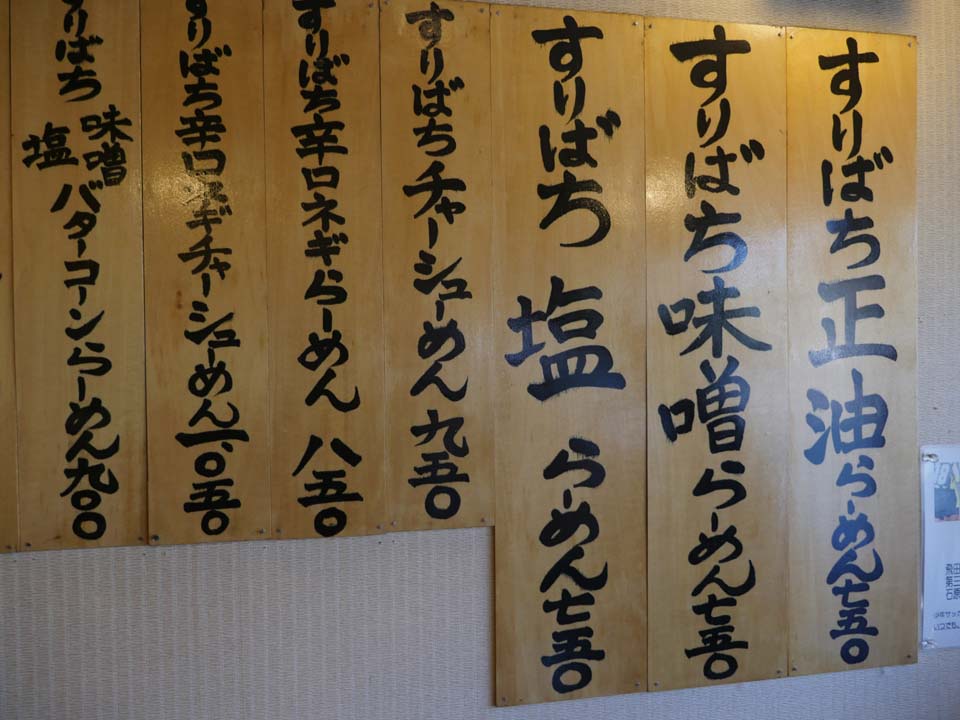 すりばち正油らーめん七五〇
すりばち味噌らーめん七五〇
すりばち 塩 らーめん七五〇
すりばちチャーシューめん九五〇
すりばち辛口ネギらーめん八五〇
すりばち辛口ネギチャーシューめん一、〇五〇
すりばち 味噌 塩 バターコーンらーめん九〇〇